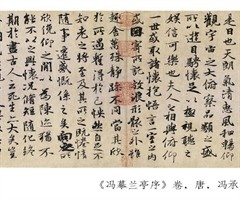 是日也天朗氣清惠風和暢仰
觀宇宙之大俯察品類之盛
所以遊目騁懷足以極視聽之
娛信可樂也夫人之相與俯仰
一世或取諸懷抱悟言一室之內
或因寄所託放浪形骸之外雖
趣舍萬殊靜躁不同當其欣
於所遇蹔得於己快然自足不
知老之將至及其所之既惓情
隨事遷感慨係之矣向之所
欣俛仰之閒以為陳迹猶不
能不以之興懷況脩短隨化終
期於盡古人云死生亦大矣豈
《冯摹兰亭序》卷，唐，冯承